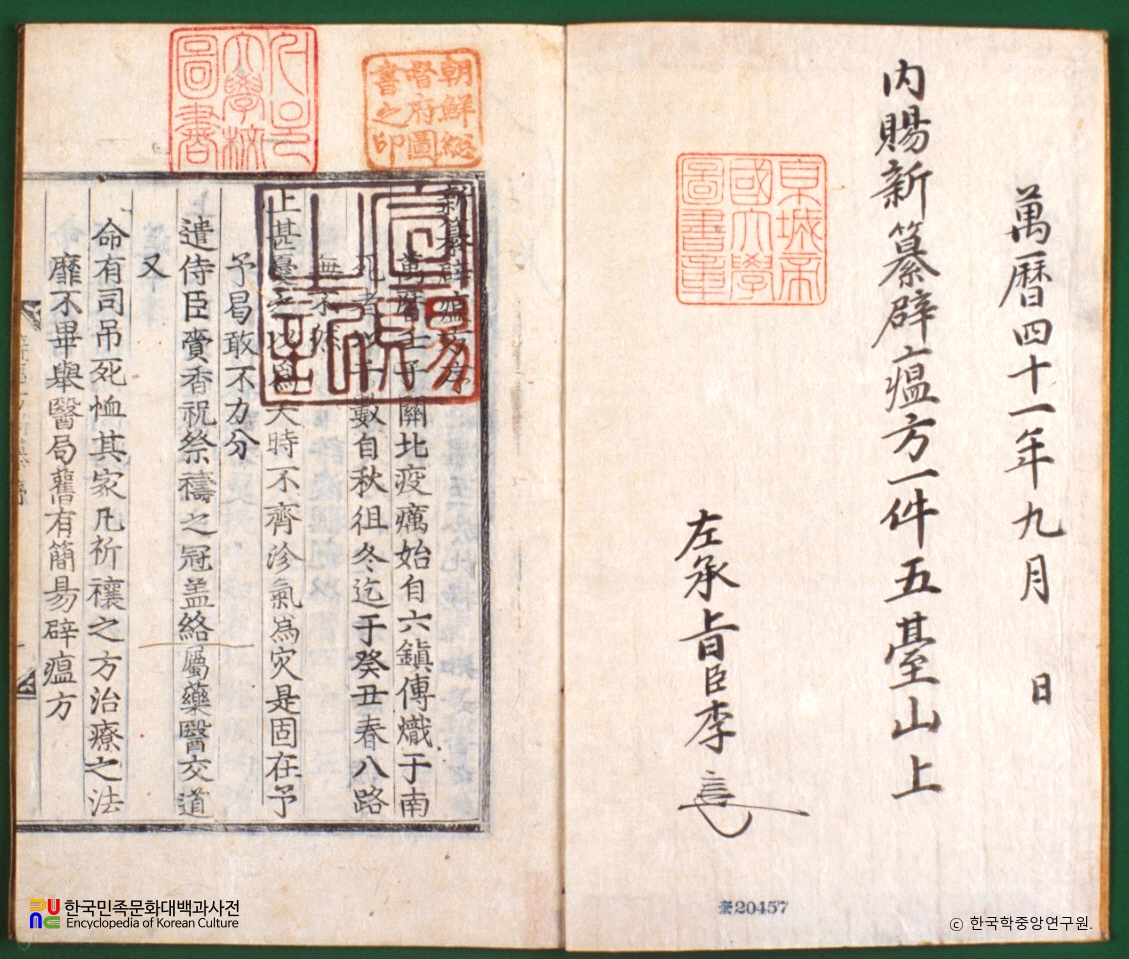 萬曆四十一年九月 日
內賜新纂辟瘟方一件五臺山上
左承旨臣李
京城帝
國大學
圖書章
奎20457
朝鮮總
督府圖
書之印
서울
大學校
圖書
宣賜
之記
新纂辟瘟方序
萬曆壬子關北疫癘始自六鎮傳熾于南
死者以千數自秋徂冬迄于癸丑春八路
無不然
上甚憂之以爲天時不齊沴氣爲灾是固在予
予曷敢不力分
遣侍臣賫香祝祭禱之冠盖絡屬藥醫交道
又
命有司吊死恤其家凡祈禳之方治療之法
靡不畢舉醫局舊有簡易辟瘟方
한국민족문화대백과사전
Encyclopedia of Korean Culture
ⓒ 한국학중앙연구원.